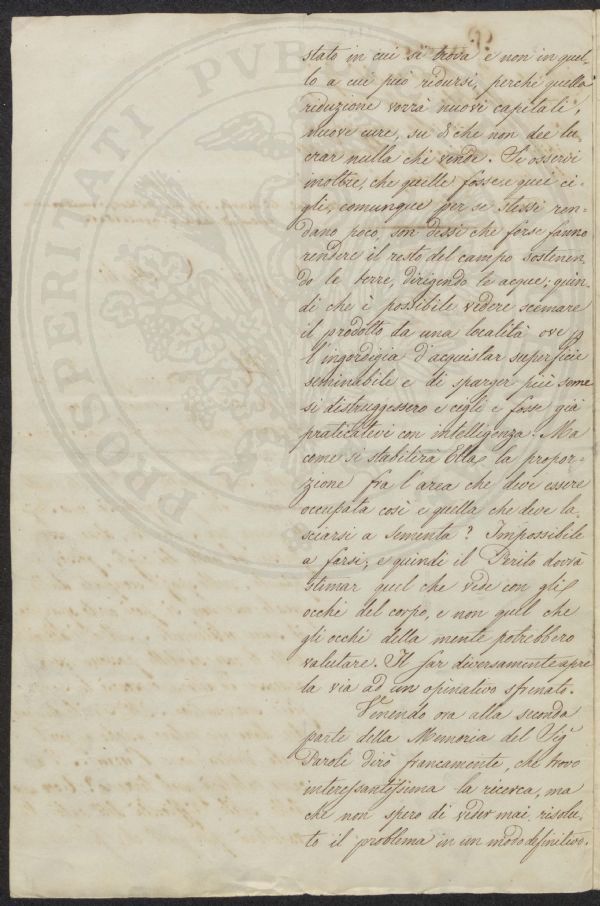 stato in cui si trova e non in quel-
lo a cui può ridursi, perchè quella
riduzione vorrà nuovi capitali,
nuove cure, su di che non dee lu-
crar nulla chi vende. Si osservi
inoltre, che quelle fosse, e quei ci-
gli, comunque per se stessi ren-
dano poco, son dessi che forse fanno
rendere il resto del campo sostenen-
do le terre, dirigendo le acque; quin-
di che è possibile vedere scemare
il prodotto da una località ove p
l'ingordigia d'acquistar superficie
seminabile e di sparger più seme
si distruggessero e cigli e fosse già
praticatevi con intelligenza. Ma
come si stabilirà Ella la propor-
zione fra l'area che deve essere
occupata così e quella che deve la-
sciarsi a sementa? Impossibile
a farsi; e quindi il Perito dovrà
stimar quel che vede con gli
occhi del corpo, e non quel che
gli occhi della mente potrebbero
valutare. Il far diversamente apre
la via ad un opinativo sfrenato.
Venendo ora alla seconda
parte della Memoria del Sig
Paroli dirò francamente, che trovo
interessantissima la ricerca, ma
che non spero di veder mai risolu-
to il problema in un modo definitivo.
PROSPERITATI PVB